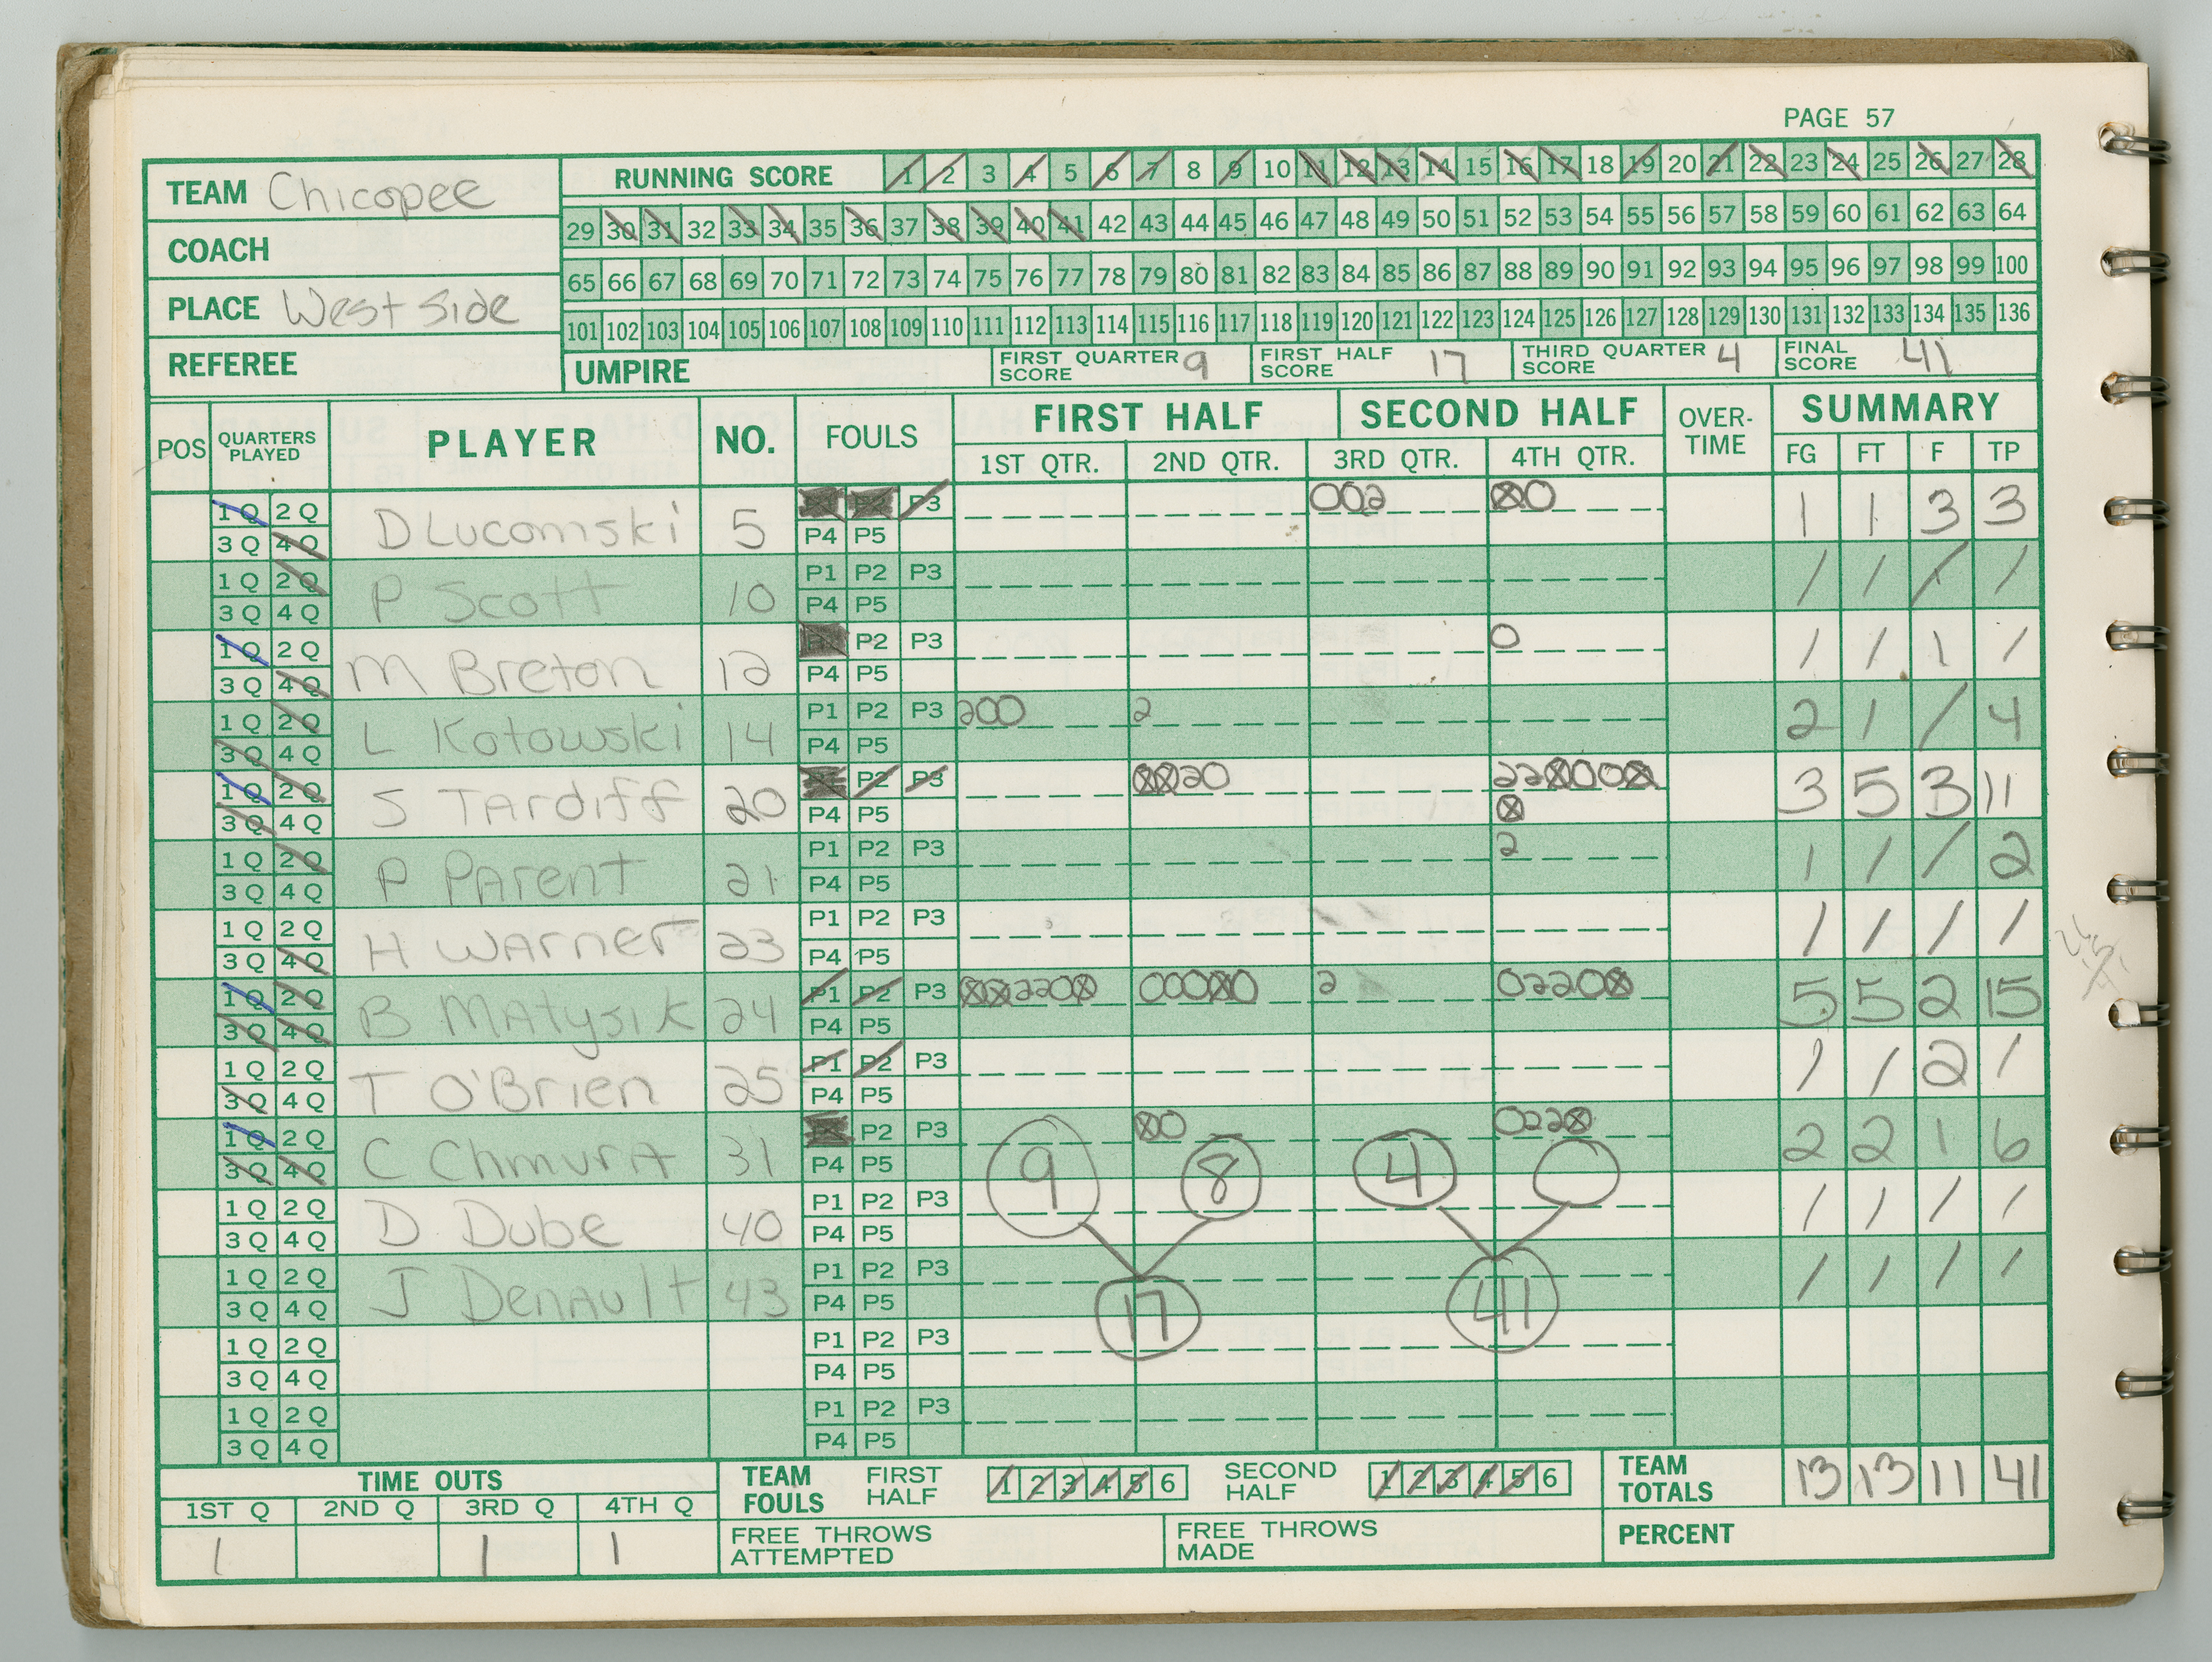 PAGE 57
TEAM Chicopee
COACH
PLACE West Side
REFEREE
RUNNING SCORE 1 2 3 4 5 6 7 8 9 10 11 12 13 14 15 16 17 18 19 20 21 22 23 24 25 26 27 28
29 30 31 32 33 34 35 36 37 38 39 40 41 42 43 44 45 46 47 48 49 50 51 52 53 54 55 56 57 58 59 60 61 62 63 64
65 66 67 68 69 70 71 72 73 74 75 76 77 78 79 80 81 82 83 84 85 86 87 88 89 90 91 92 93 94 95 96 97 98 99 100
101 102 103 104 105 106 107 108 109 110 111 112 113 114 115 116 117 118 119 120 121 122 123 124 125 126 127 128 129 130 131 132 133 134 135 136
UMPIRE FIRST QUARTER SCORE 9 FIRST HALF SCORE 17 THIRD QUARTER SCORE 4 FINAL SCORE 41
POS QUARTERS PLAYED PLAYER NO. FOULS FIRST HALF SECOND HALF OVER-TIME SUMMARY
1ST QTR. 2ND QTR. 3RD QTR. 4TH QTR. FG FT F TP
1Q 2Q D Lucomski 5 P3 002 ⊗0 1 1 3 3
3Q 4Q P4 P5
1Q 2Q P Scott 10 P1 P2 P3 / / / /
3Q 4Q P4 P5
1Q 2Q M Breton 12 P2 P3 0 / / 1 /
3Q 4Q P4 P5
1Q 2Q L Kotowski 14 P1 P2 P3 200 2 2 1 / 4
3Q 4Q P4 P5
1Q 2Q S Tardiff 20 P1 P2 P3 ⊗⊗20 22⊗000⊗ 3 5 3 11
3Q 4Q P4 P5 ⊗
1Q 2Q P Parent 21 P1 P2 P3 2 1 / / 2
3Q 4Q P4 P5
1Q 2Q H Warner 23 P1 P2 P3 / / / /
3Q 4Q P4 P5
1Q 2Q B Matysik 24 P1 P2 P3 ⊗⊗220⊗ 000⊗0 2 0220⊗ 5 5 2 15
3Q 4Q P4 P5
1Q 2Q T O'Brien 25 P1 P2 P3 / / 2 /
3Q 4Q P4 P5
1Q 2Q C Chmura 31 P2 P3 ⊗0 022⊗ 2 2 1 6
3Q 4Q P4 P5 9 8 4
1Q 2Q D Dube 40 P1 P2 P3 / / / /
3Q 4Q P4 P5
1Q 2Q J Denault 43 P1 P2 P3 / / / /
3Q 4Q P4 P5 17 41
1Q 2Q P1 P2 P3
3Q 4Q P4 P5
1Q 2Q P1 P2 P3
3Q 4Q P4 P5
TIME OUTS TEAM FOULS FIRST HALF 1 2 3 4 5 6 SECOND HALF 1 2 3 4 5 6 TEAM TOTALS 13 13 11 41
1ST Q 2ND Q 3RD Q 4TH Q
1 1 1
FREE THROWS ATTEMPTED FREE THROWS MADE PERCENT